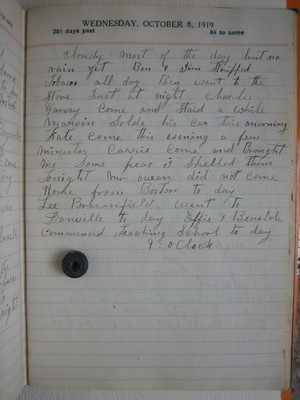 WEDNESDAY, OCTOBER 8, 1919
281 days past 84 to come
Cloudy most of the day but no
rain yet Ben & Jim Stripped
Tobaco all day Ben went to the
Store Just at night Charlie
come and Staid a while
Marvin Solde his car this morning
Kate Come this evening a few
minutes Carrie Come and Brought
me Some peas & I Shelled them
tonight Mr owen did not come
Home from Boston to day
Lee went to
Danville to day Effie &
Commenced Teaching School to day
9 - oClock